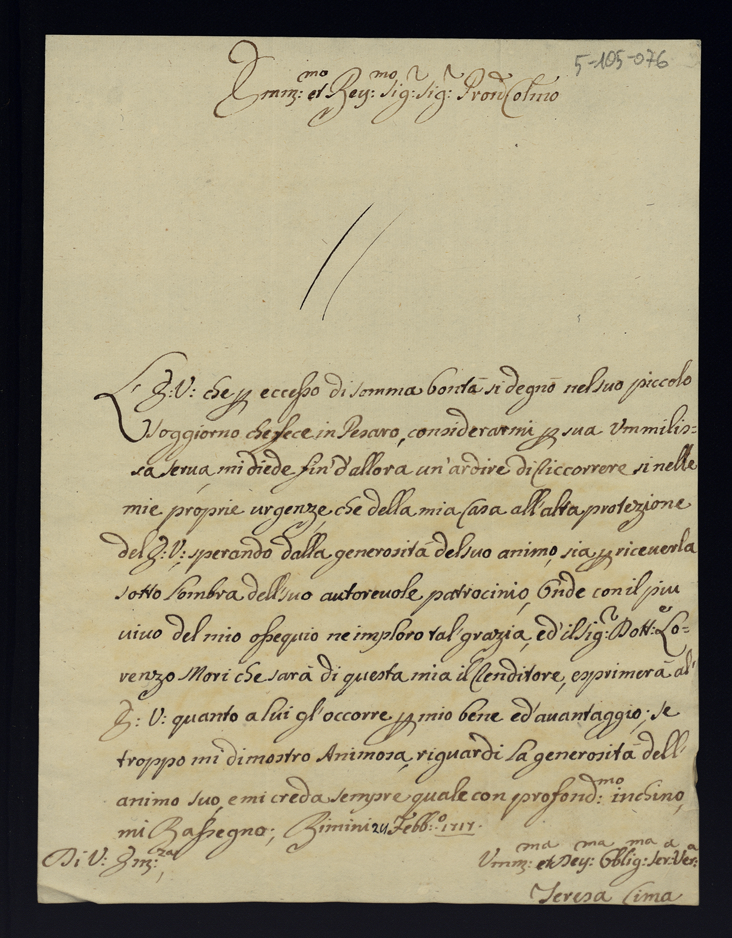 5-105-076
Emin:mo et Rev:mo Sig:r Sig:r Pron Colmo
L'E:V: che p eccesso di somma bontà si degnò nel suo piccolo
soggiorno che fece in Pesaro, considerarmi p sua Ummilis=
sa serua, mi diede fin d'allora un'ardire di riccorrere sì nelle
mie proprie urgenze, che della mia Casa all'alta protezione
del E:V:, sperando dalla generosità del suo animo, sia p riceuerla
sotto l'ombra dell'suo autoreuole patrocinio, Onde con il piu
uiuo del mio ossequio ne imploro tal'grazia, ed'il Sig:r Dott:r Lo=
renzo Mori che sarà di questa mia il Renditore, esprimerà al'
E: V: quanto a lui gl'occorre p mio bene ed'auantaggio; se
troppo mi dimostro Animosa, riguardi la generosità dell'
animo suo, e mi creda sempre quale con profond:mo inchino,
mi Rassegno; Rimini 24 Febb:o 1717.
Di V: Em:za
Umm:ma et Dev:ma Oblig:ma Ser:a Ver:a
Teresa Cima